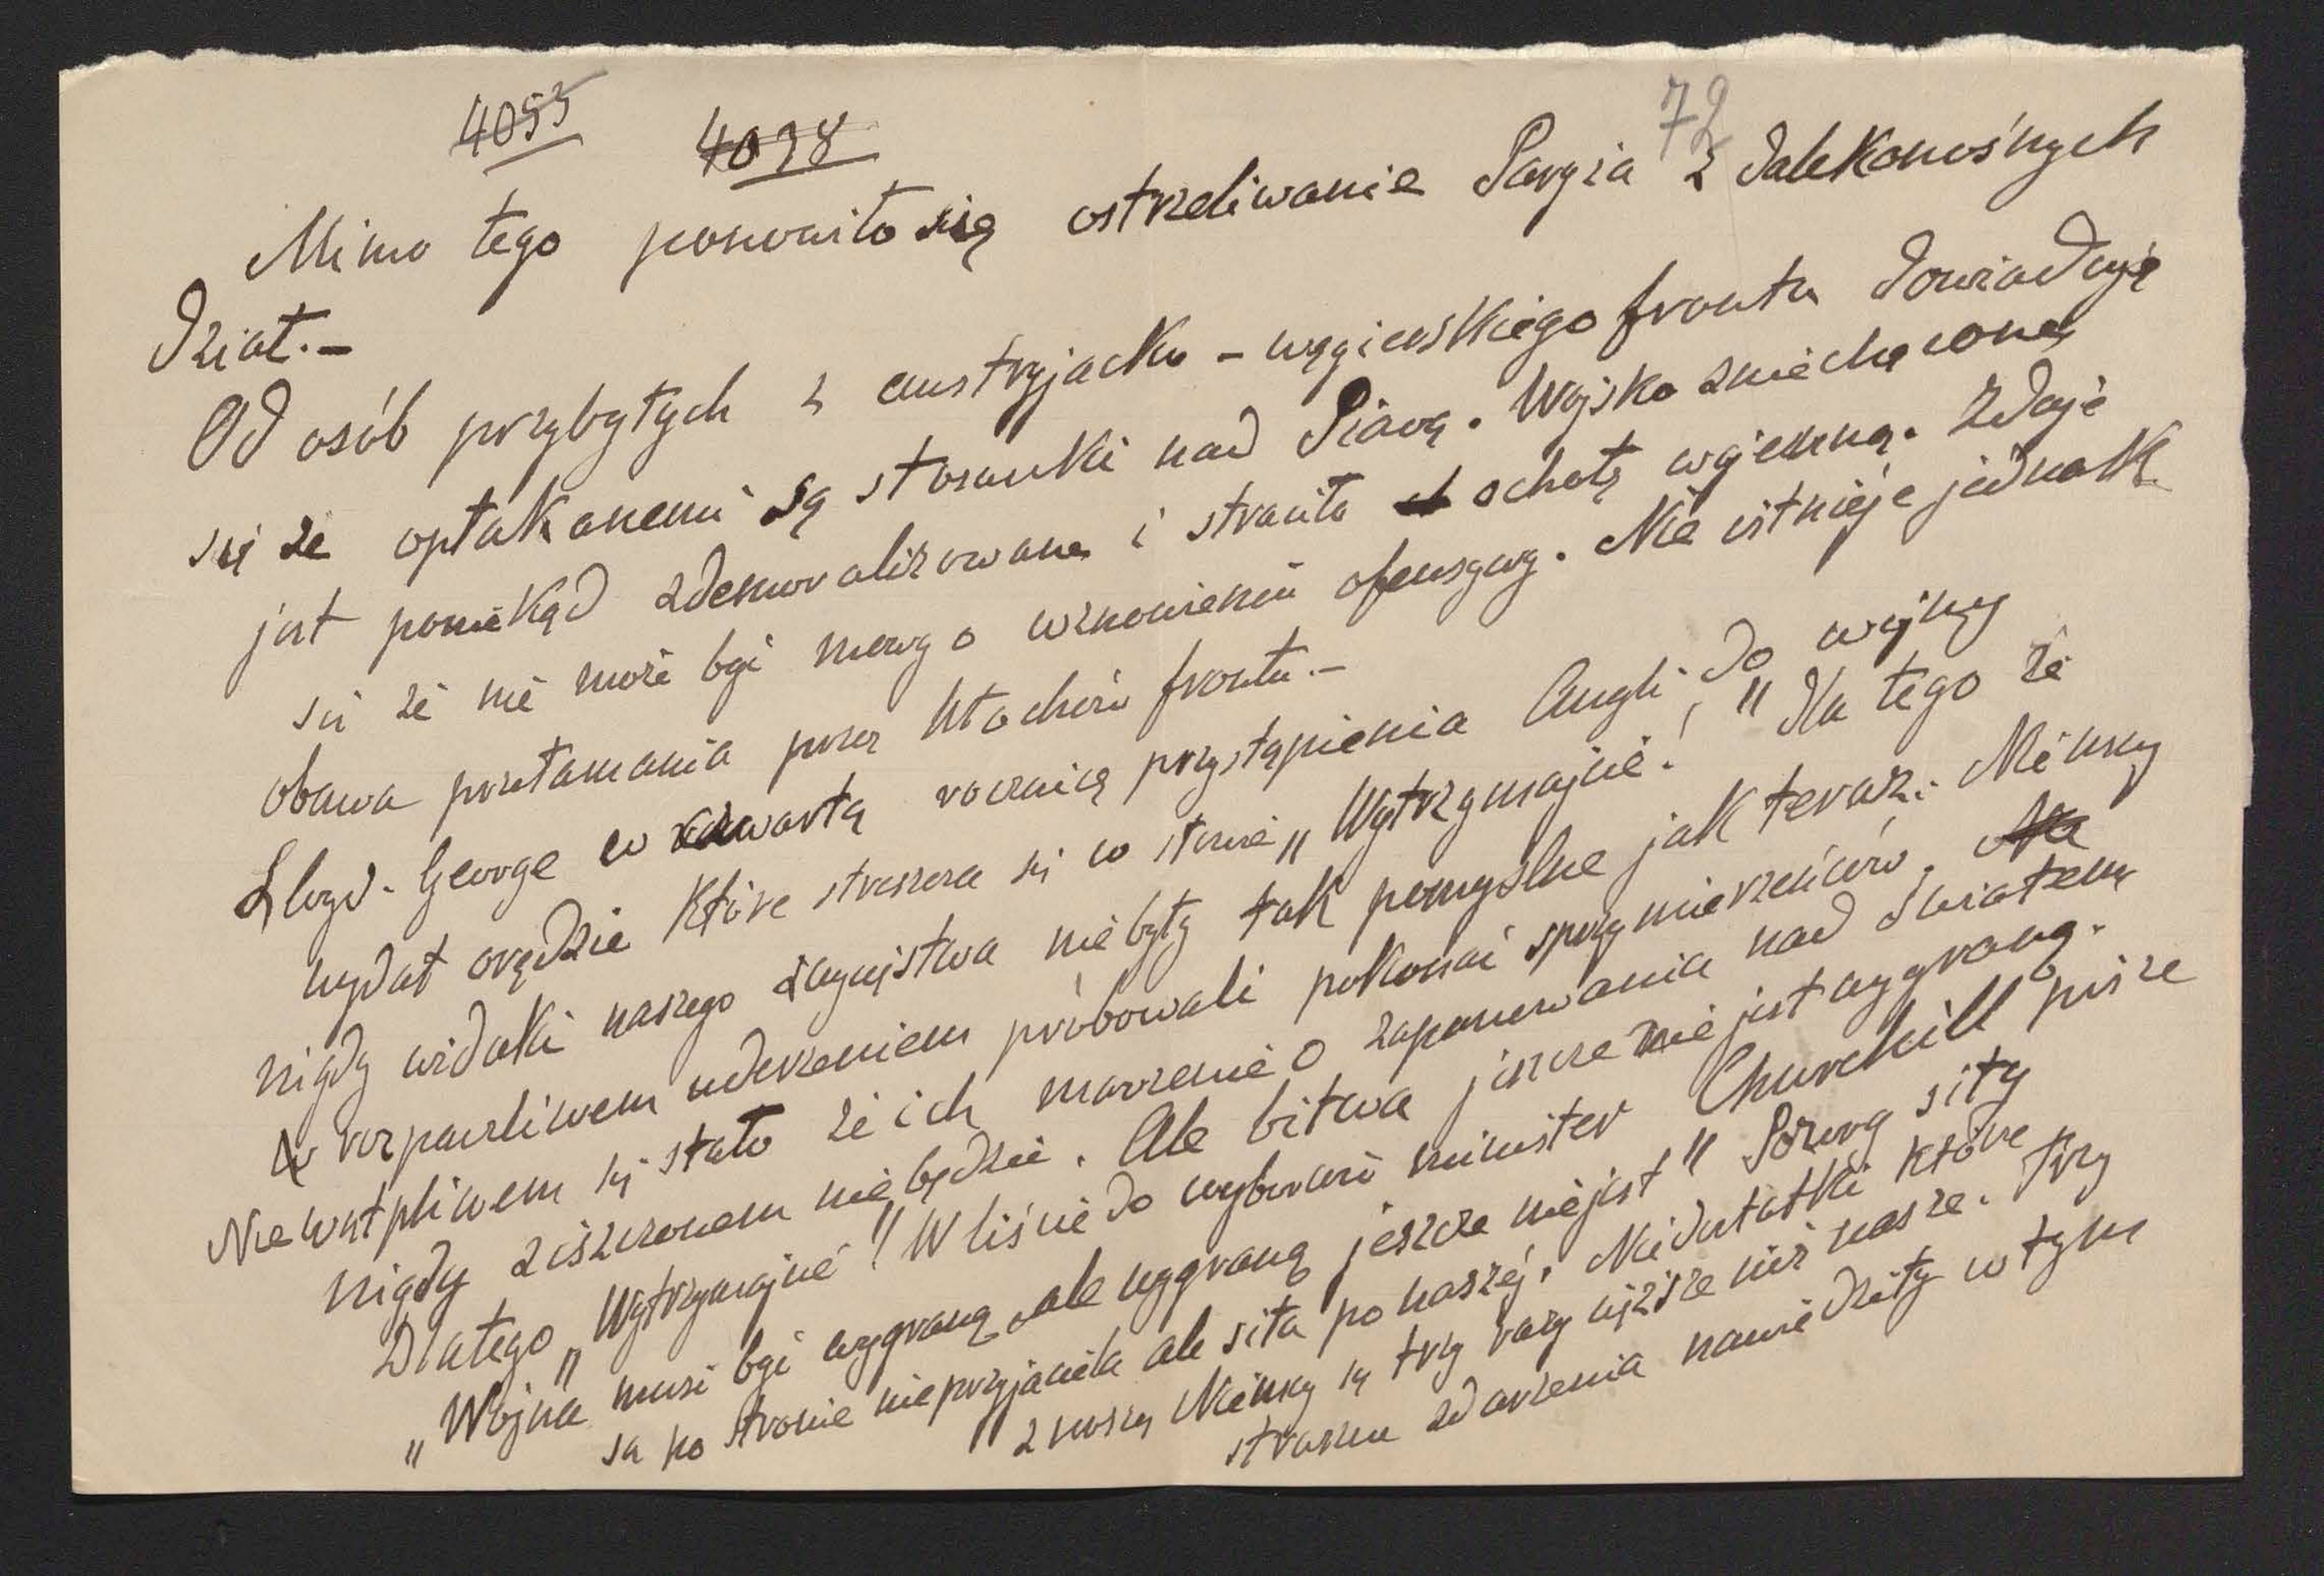 4055
4098
72
Mimo tego ponowiło się ostrzeliwanie Paryża z dalekonośnych
dział.-
Od osób przybytych z austryjacko-węgierskiego frontu dowiaduję
się że opłakanemi są stosunki nad Piavą. Wojsko zniechęcone
jest poniekąd zdemoralizowane i straciło ochotę wojenną. Zdaje
się że nie może być mowy o wznowieniu ofensywy. Nie istnieje jednak
obawa przełamania przez Włochów frontu.-
Lloyd-George w czwartą rocznicę przystąpienia Anglii do wojny
wydał orędzie które streszcza się w słowie „Wytrzymajcie!" Dla tego że
nigdy widoki naszego zwycięstwa nie były tak pomyślne jak teraz. Niemcy
rozpaczliwem uderzeniem próbowali pokonać sprzymierzeńców.
Niewątpliwem się stało że ich marzenie o zapanowania nad światem
nigdy ziszczonem nie będzie. Ale bitwa jeszcze nie jest wygraną.
Dlatego „Wytrzymajcie"! W liście do wyborców minister Churchill pisze
„Wojna musi być wygraną ale wygraną jeszcze nie jest" Pozory siły
są po stronie nieprzyjaciela ale siła po naszej. Niedostatki które
znoszą Niemcy są trzy razy cięższe niż nasze. Trzy
straszne zdarzenia nawiedziły w tym